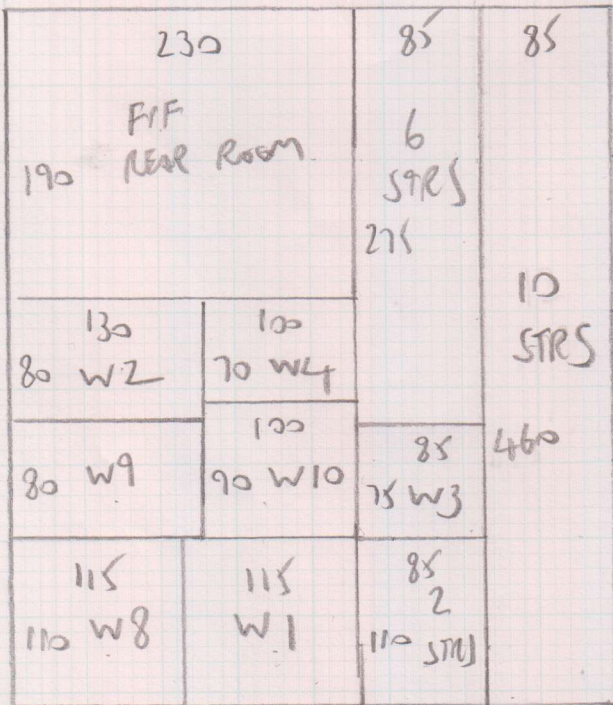 230
F/F
190 REAR ROOM
85
6
STRS
275
85
10
STRS
460
130
80 W2
100
70 W4
80 W9
100
90 W10
85
75 W3
115
110 W8
115
W1
85
2
110 STRS